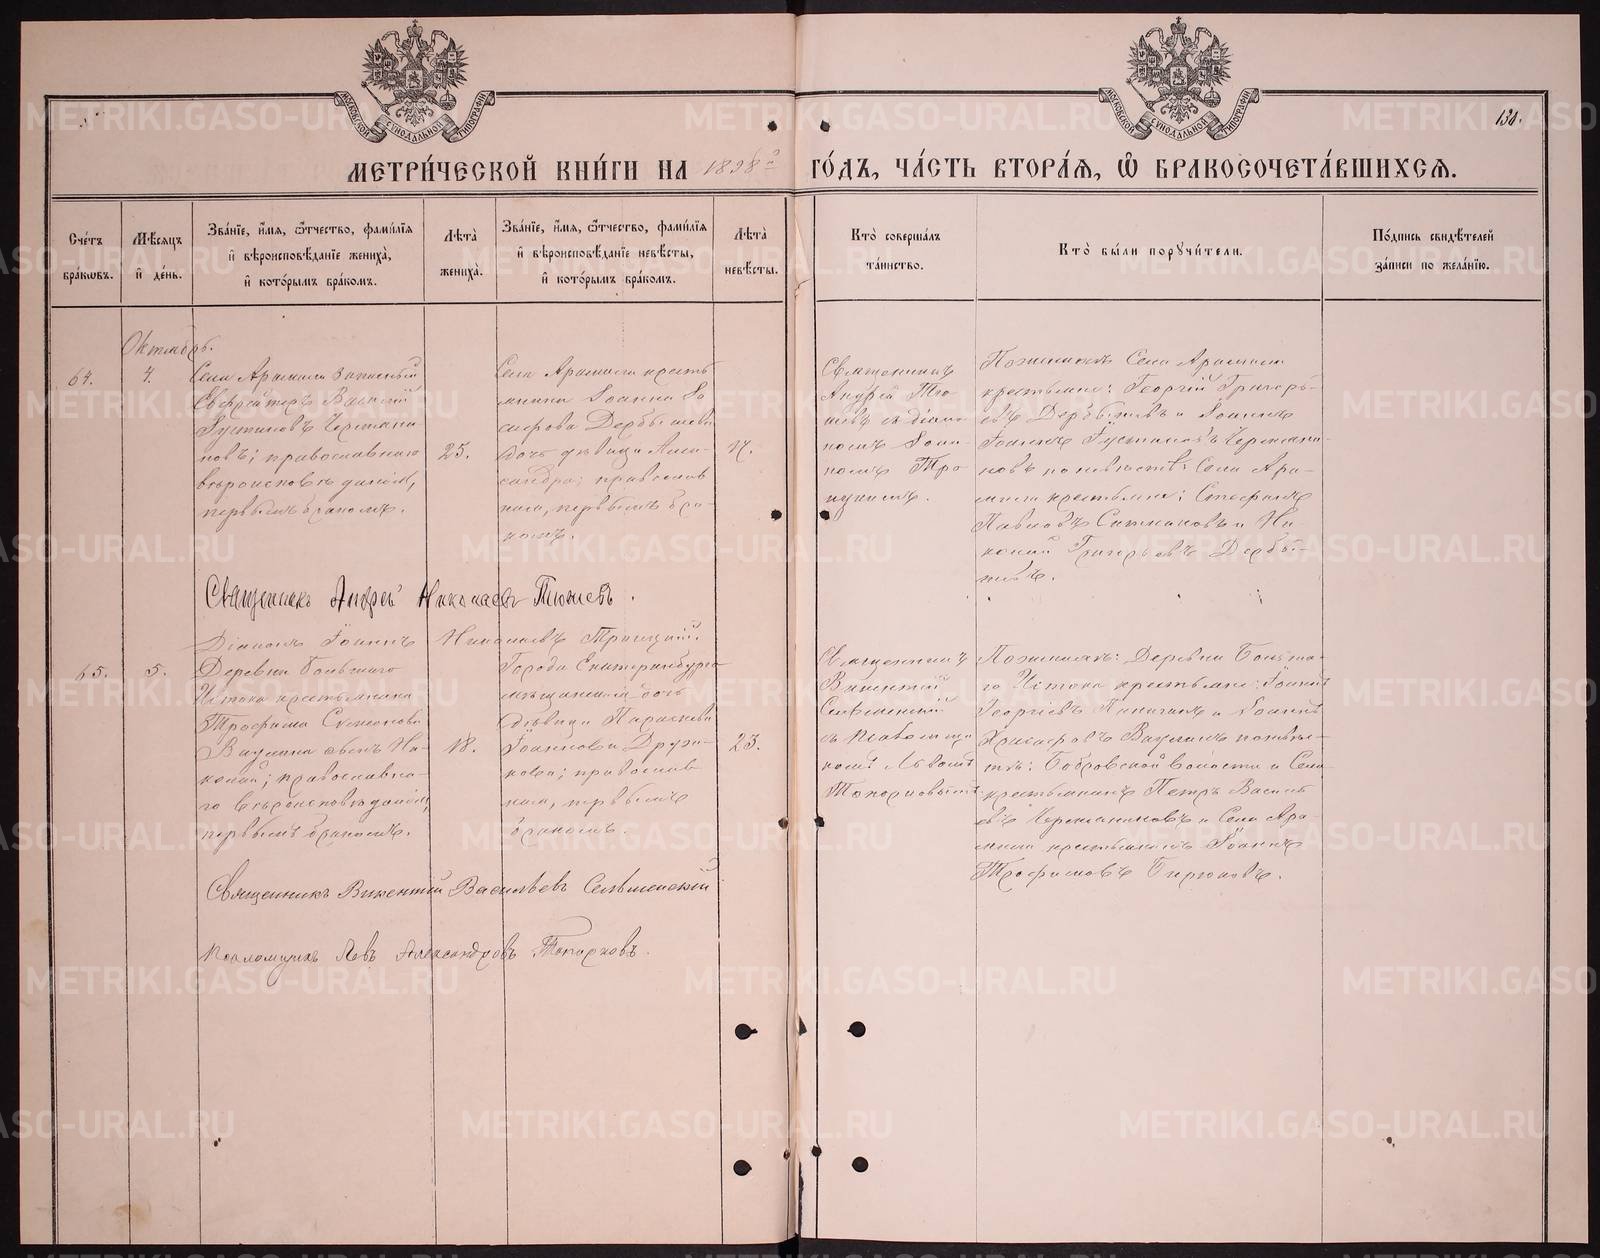 МОСКОВСКОЙ СѴНОДАЛЬНОЙ ТИПОГРАФИИ
МОСКОВСКОЙ СѴНОДАЛЬНОЙ ТИПОГРАФИИ
138.
МЕТРИ́ЧЕСКОЙ КНИ́ГИ НА 1898 ГО́ДЪ, ЧА́СТЬ ВТОРА́Я, Ѽ БРАКОСОЧЕТА́ВШИХСЯ.
Сче́тъ
бра́ковъ.
Мѣ́сяцъ
и҆ де́нь.
Зва́нїе, и҆́мя, ѻ҆́тчество, фами́лїѧ
и҆ вѣроисповѣ́данїе жениха̀,
и҆ кото́рымъ бра́комъ.
Лѣ́та
жениха̀.
Зва́нїе, и҆́мя, ѻ҆́тчество, фами́лїѧ
и҆ вѣроисповѣ́данїе невѣ́сты,
и҆ кото́рымъ бра́комъ.
Лѣ́та
невѣ́сты.
Кто̀ соверша́лъ
та́инство.
Кто̀ бы́ли порꙋчи́тели.
По́дпись свидѣ́телей
за́писи по жела́нїю.
Октябрь.
64.
4.
Села Арамили запасный
Ефрейторъ Василій
Іустиновъ Чермяни
новъ; православнаго
вѣроисповѣданія,
первымъ бракомъ.
25.
Села Арамили кресть
янина Іоанна Іо
сифова Дербышева
дочь дѣвица Алек
сандра; православ
ная, первымъ бра-
комъ.
Священникъ
Андрей Тю
шевъ съ діако
номъ Іоан
номъ Тро
ицкимъ.
По женихѣ: Села Арамили
крестьяне: Георгій Григорь-
евъ Дербышевъ и Іоаннъ
Іустиновъ Чермяни-
новъ по невѣстѣ: Села Ара-
мили крестьяне: Стефанъ
Павловъ и Ни-
колай Григорьевъ Дербы-
шевъ.
Священникъ Андрей Николаевъ Тюшевъ.
Діаконъ Іоаннъ Николаевъ Троицкій.
65.
5.
Деревни Большаго
Истока крестьянина
Трофима Симонова
Ваулина сынъ Ни-
колай; православна-
го вѣроисповѣданія,
первымъ бракомъ.
18.
Города Екатеринбурга
мѣщанина дочь
дѣвица Параскева
Іоаннова Дружи-
нова; православ
ная, первымъ
бракомъ.
23.
Священникъ
Викентій
Селѣменскій
съ псаломщи
комъ Львомъ
Топорковымъ
По женихѣ: Деревни Больша-
го Истока крестьяне: Іоаннъ
Георгіевъ и Іоаннъ
Ваулинъ по невѣс-
тѣ: Бобровской волости и Села
крестьянинъ Петръ Василь
евъ Чермяниновъ и Села Ара-
мили крестьянинъ Іоаннъ
Трофимовъ Бирюковъ.
Священникъ Викентій Васильевъ Селѣменскій
Псаломщикъ Левъ Александровъ Топорковъ.
METRIKI.GASO-URAL.RU